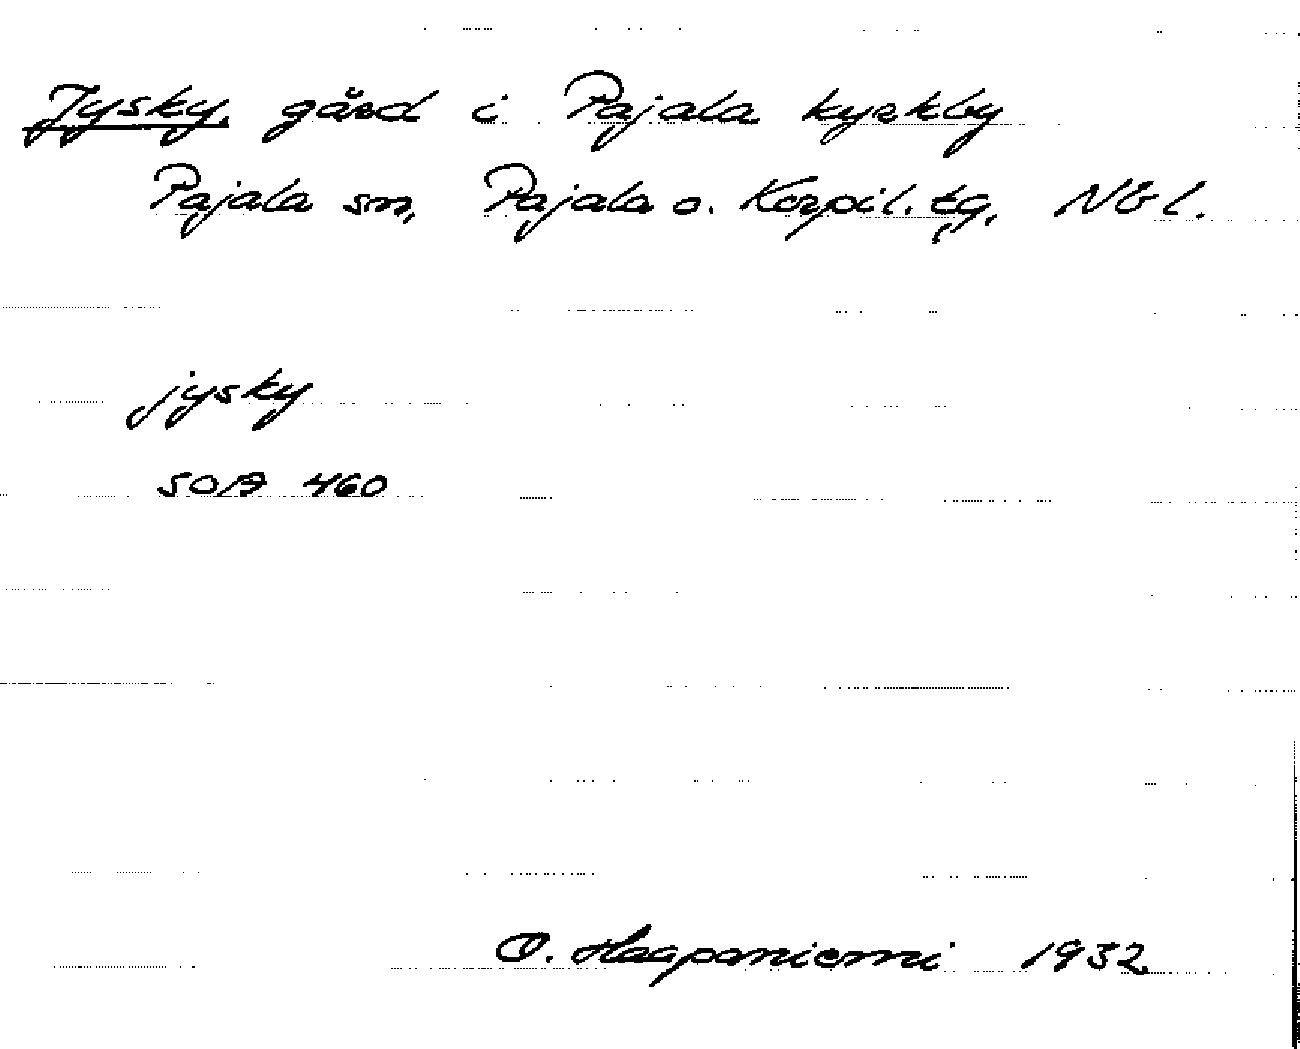 Jysky, gård i Pajala kyrkby
Pajala sn, Pajala o. Korpil. tg, Nbl.
jysky
SOA 460
O. Haapaniemi 1932